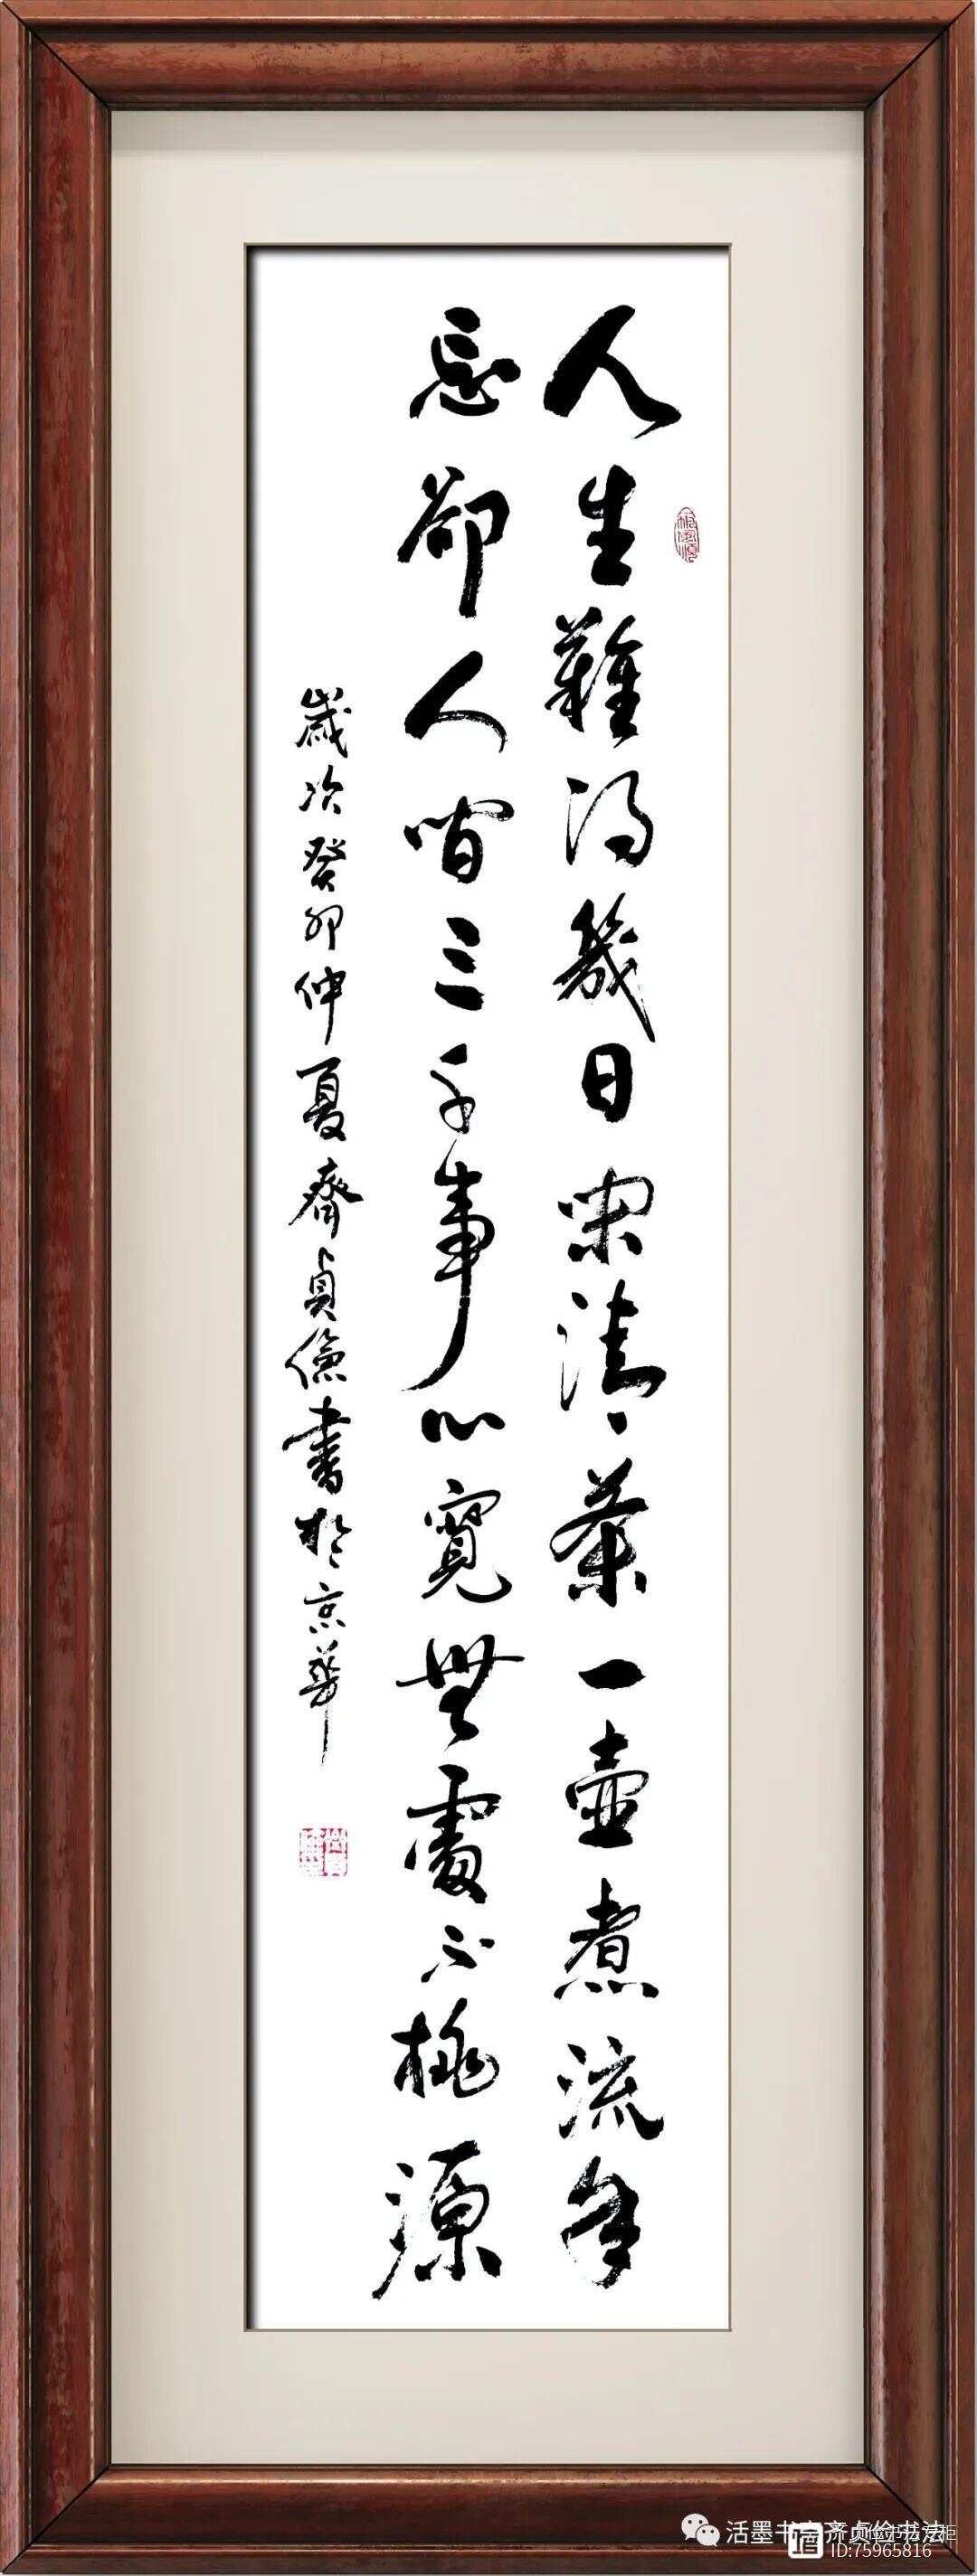 人生難得幾日閑清茶一壺煮流年
忘卻人間三千事心寬無處不桃源
歲次癸卯仲夏齊貞儉書於京華
活墨书 书法
ID:75965816